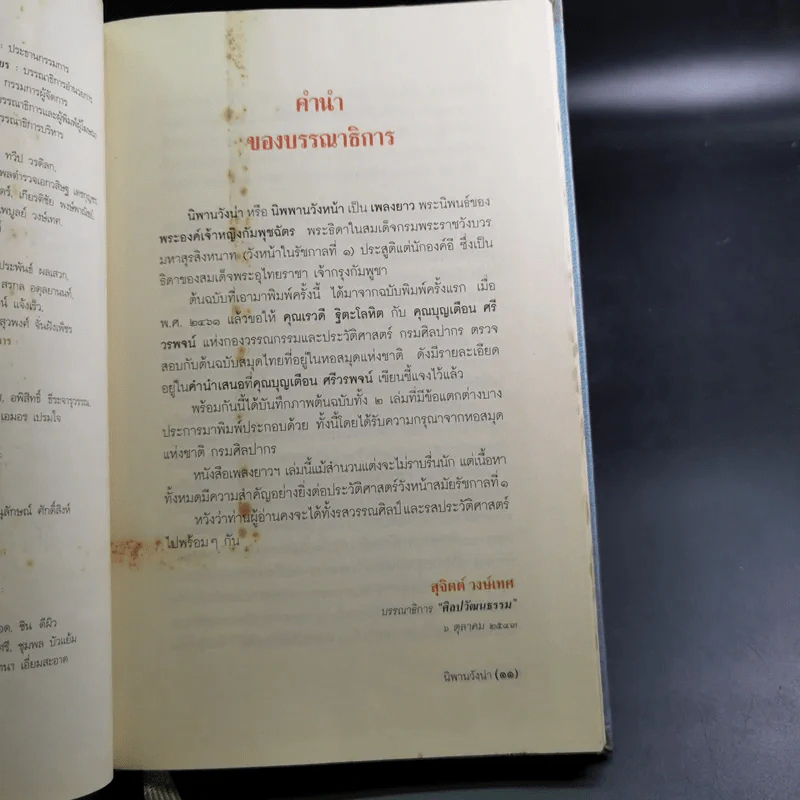 : ประธานกรรมการ
: บรรณาธิการอำนวยการ
กรรมการผู้จัดการ
รรณาธิการบริหาร
ทวีป วรดิลก
ไพบูลย์ วงษ์เทศ
ประพันธ์ ผลเสวก
สรกุล อดุลยานนท์
น์ แจ้งเร็ว
สุวพงศ์ จั่นฝังเพ็ชร
การ
อพิสิทธิ์ ธีระจารุวรรณ
เอมอร เปรมใจ
นุลักษณ์ ศักดิ์สิงห์
อด. ชิน ดีผิว
ศรี, ชุมพล บัวแย้ม
ทนา เอี่ยมสะอาด
คำนำ
ของบรรณาธิการ
นิพานวังน่า หรือ นิพพานวังหน้า เป็น เพลงยาว พระนิพนธ์ของ
พระองค์เจ้าหญิงกัมพุชฉัตร พระธิดาในสมเด็จกรมพระราชวังบวร
มหาสุรสิงหนาท (วังหน้าในรัชกาลที่ ๑) ประสูติแต่นักองค์อี ซึ่งเป็น
ธิดาของสมเด็จพระอุไทยราชา เจ้ากรุงกัมพูชา
ต้นฉบับที่เอามาพิมพ์ครั้งนี้ ได้มาจากฉบับพิมพ์ครั้งแรก เมื่อ
พ.ศ. ๒๔๖๑ แล้วขอให้ คุณเรวดี ฐิตะโลหิต กับ คุณบุญเตือน ศรี
วรพจน์ แห่งกองวรรณกรรมและประวัติศาสตร์ กรมศิลปากร ตรวจ
สอบกับต้นฉบับสมุดไทยที่อยู่ในหอสมุดแห่งชาติ ดังมีรายละเอียด
อยู่ในคำนำเสนอที่คุณบุญเตือน ศรีวรพจน์ เขียนชี้แจงไว้แล้ว
พร้อมกันนี้ได้บันทึกภาพต้นฉบับทั้ง ๒ เล่มที่มีข้อแตกต่างบาง
ประการมาพิมพ์ประกอบด้วย ทั้งนี้โดยได้รับความกรุณาจากหอสมุด
แห่งชาติ กรมศิลปากร
หนังสือเพลงยาวฯ เล่มนี้แม้สำนวนแต่งจะไม่ราบรื่นนัก แต่เนื้อหา
ทั้งหมดมีความสำคัญอย่างยิ่งต่อประวัติศาสตร์วังหน้าสมัยรัชกาลที่ ๑
หวังว่าท่านผู้อ่านคงจะได้ทั้งรสวรรณศิลป์และรสประวัติศาสตร์
ไปพร้อมๆ กัน
สุจิตต์ วงษ์เทศ
บรรณาธิการ "ศิลปวัฒนธรรม"
๖ ตุลาคม ๒๕๔๓
นิพานวังน่า (๑๑)